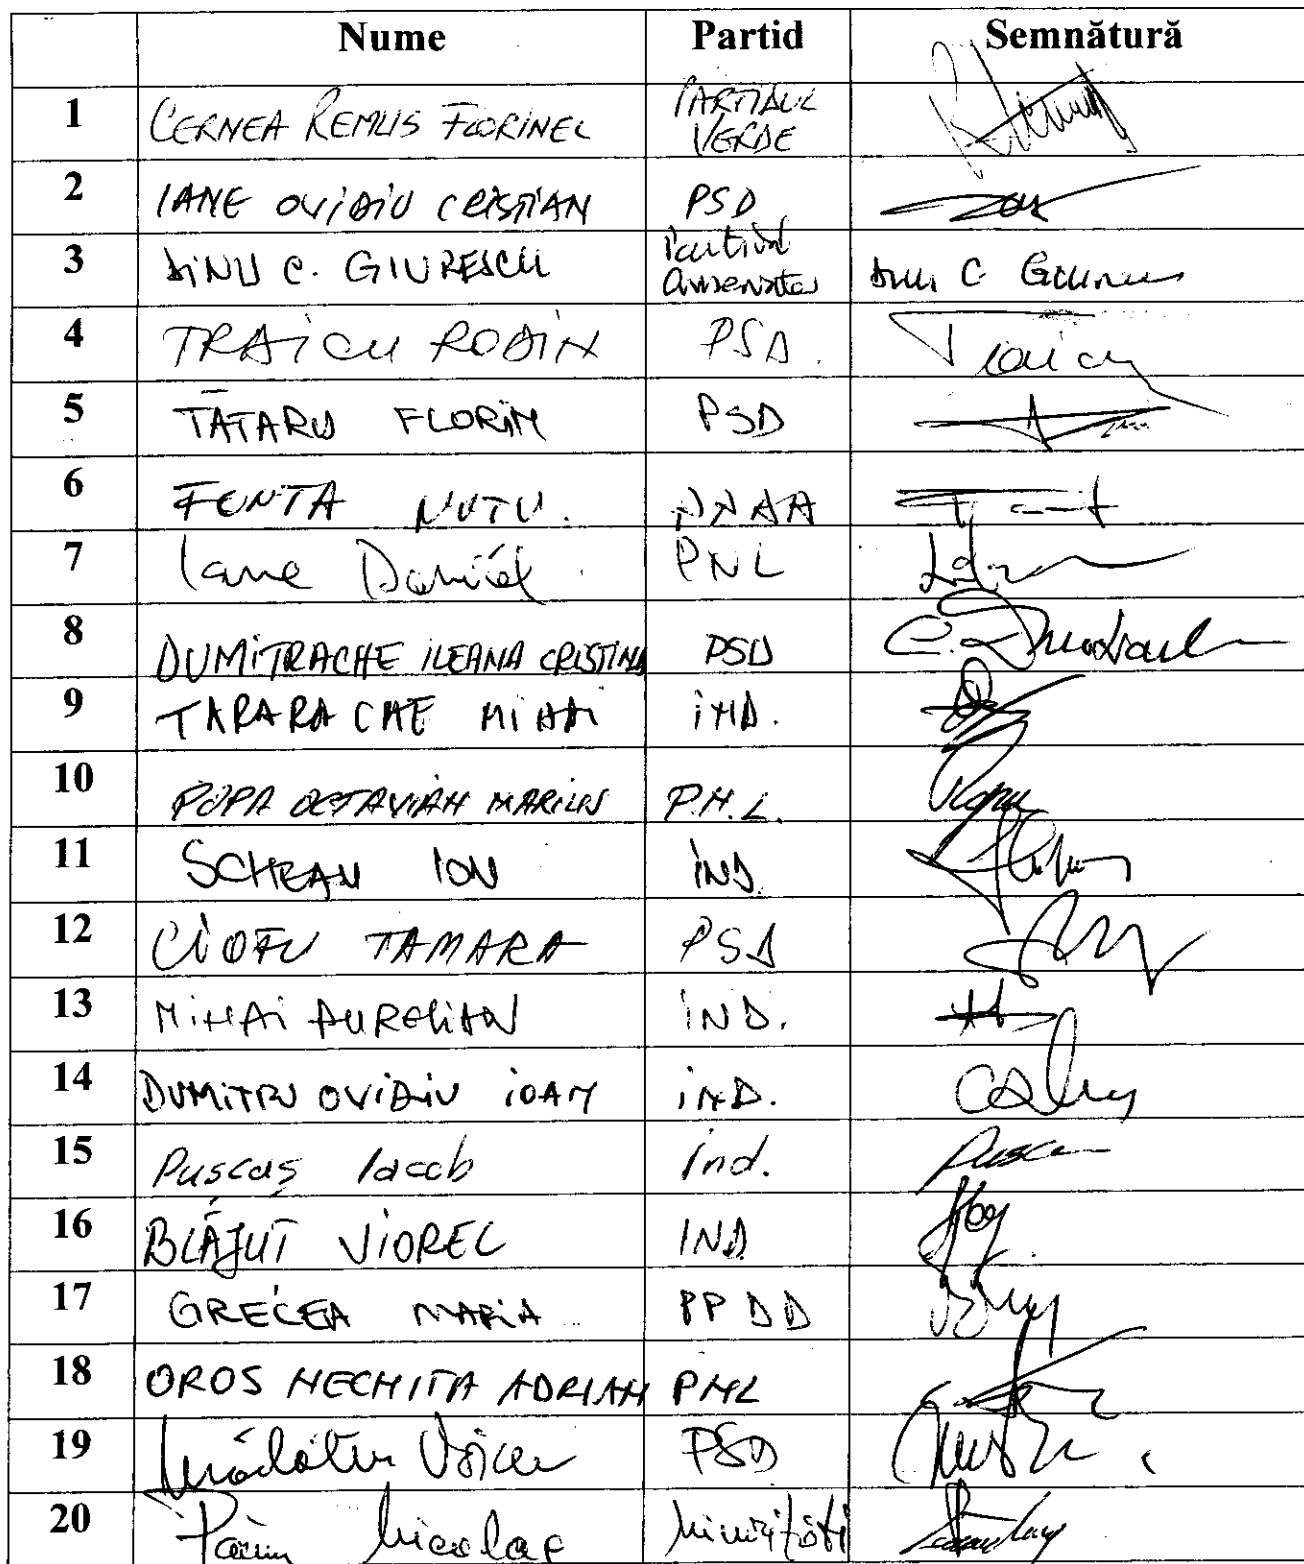 Nume Partid Semnătură
1 CERNEA REMUS FLORINEL PARTIDUL VERDE
2 IANE OVIDIU CRISTIAN PSD
3 DINU C. GIURESCU Partidul Conservator Dinu C. Giurescu
4 TRAICU ROBIN PSD. Traicu
5 TĂTARU FLORIN PSD
6 FONTA NUTU.
7 Iane Daniel PNL
8 DUMITRACHE ILEANA CRISTINA PSD
9 TARARACHE MIHAI IND.
10 POPA OCTAVIAN MARIUS P.N.L. Popa
11 SCHEAU ION IND.
12 CIOFU TAMARA PSD
13 MIHAI AURELIAN IND.
14 DUMITRU OVIDIU IOAN IND.
15 Puscaș Iacob Ind.
16 BLĂJUȚ VIOREL IND
17 GRECEA MARIA PPDD
18 OROS NECHITA ADRIAN PNL
19 Voicu PSD
20 Păun Nicolae Minorități